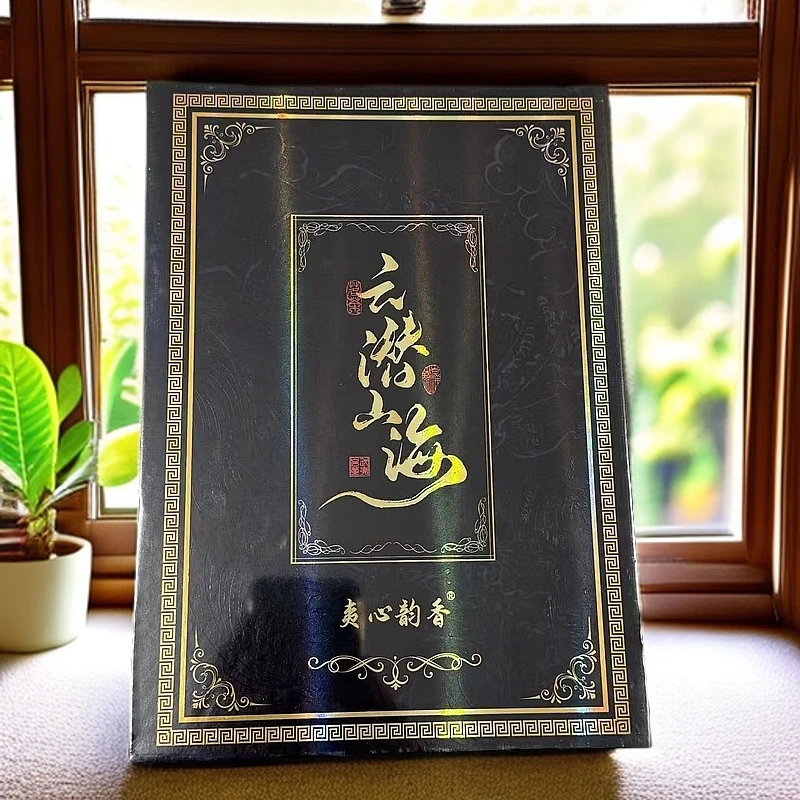 云潜山海
夷心韵香®